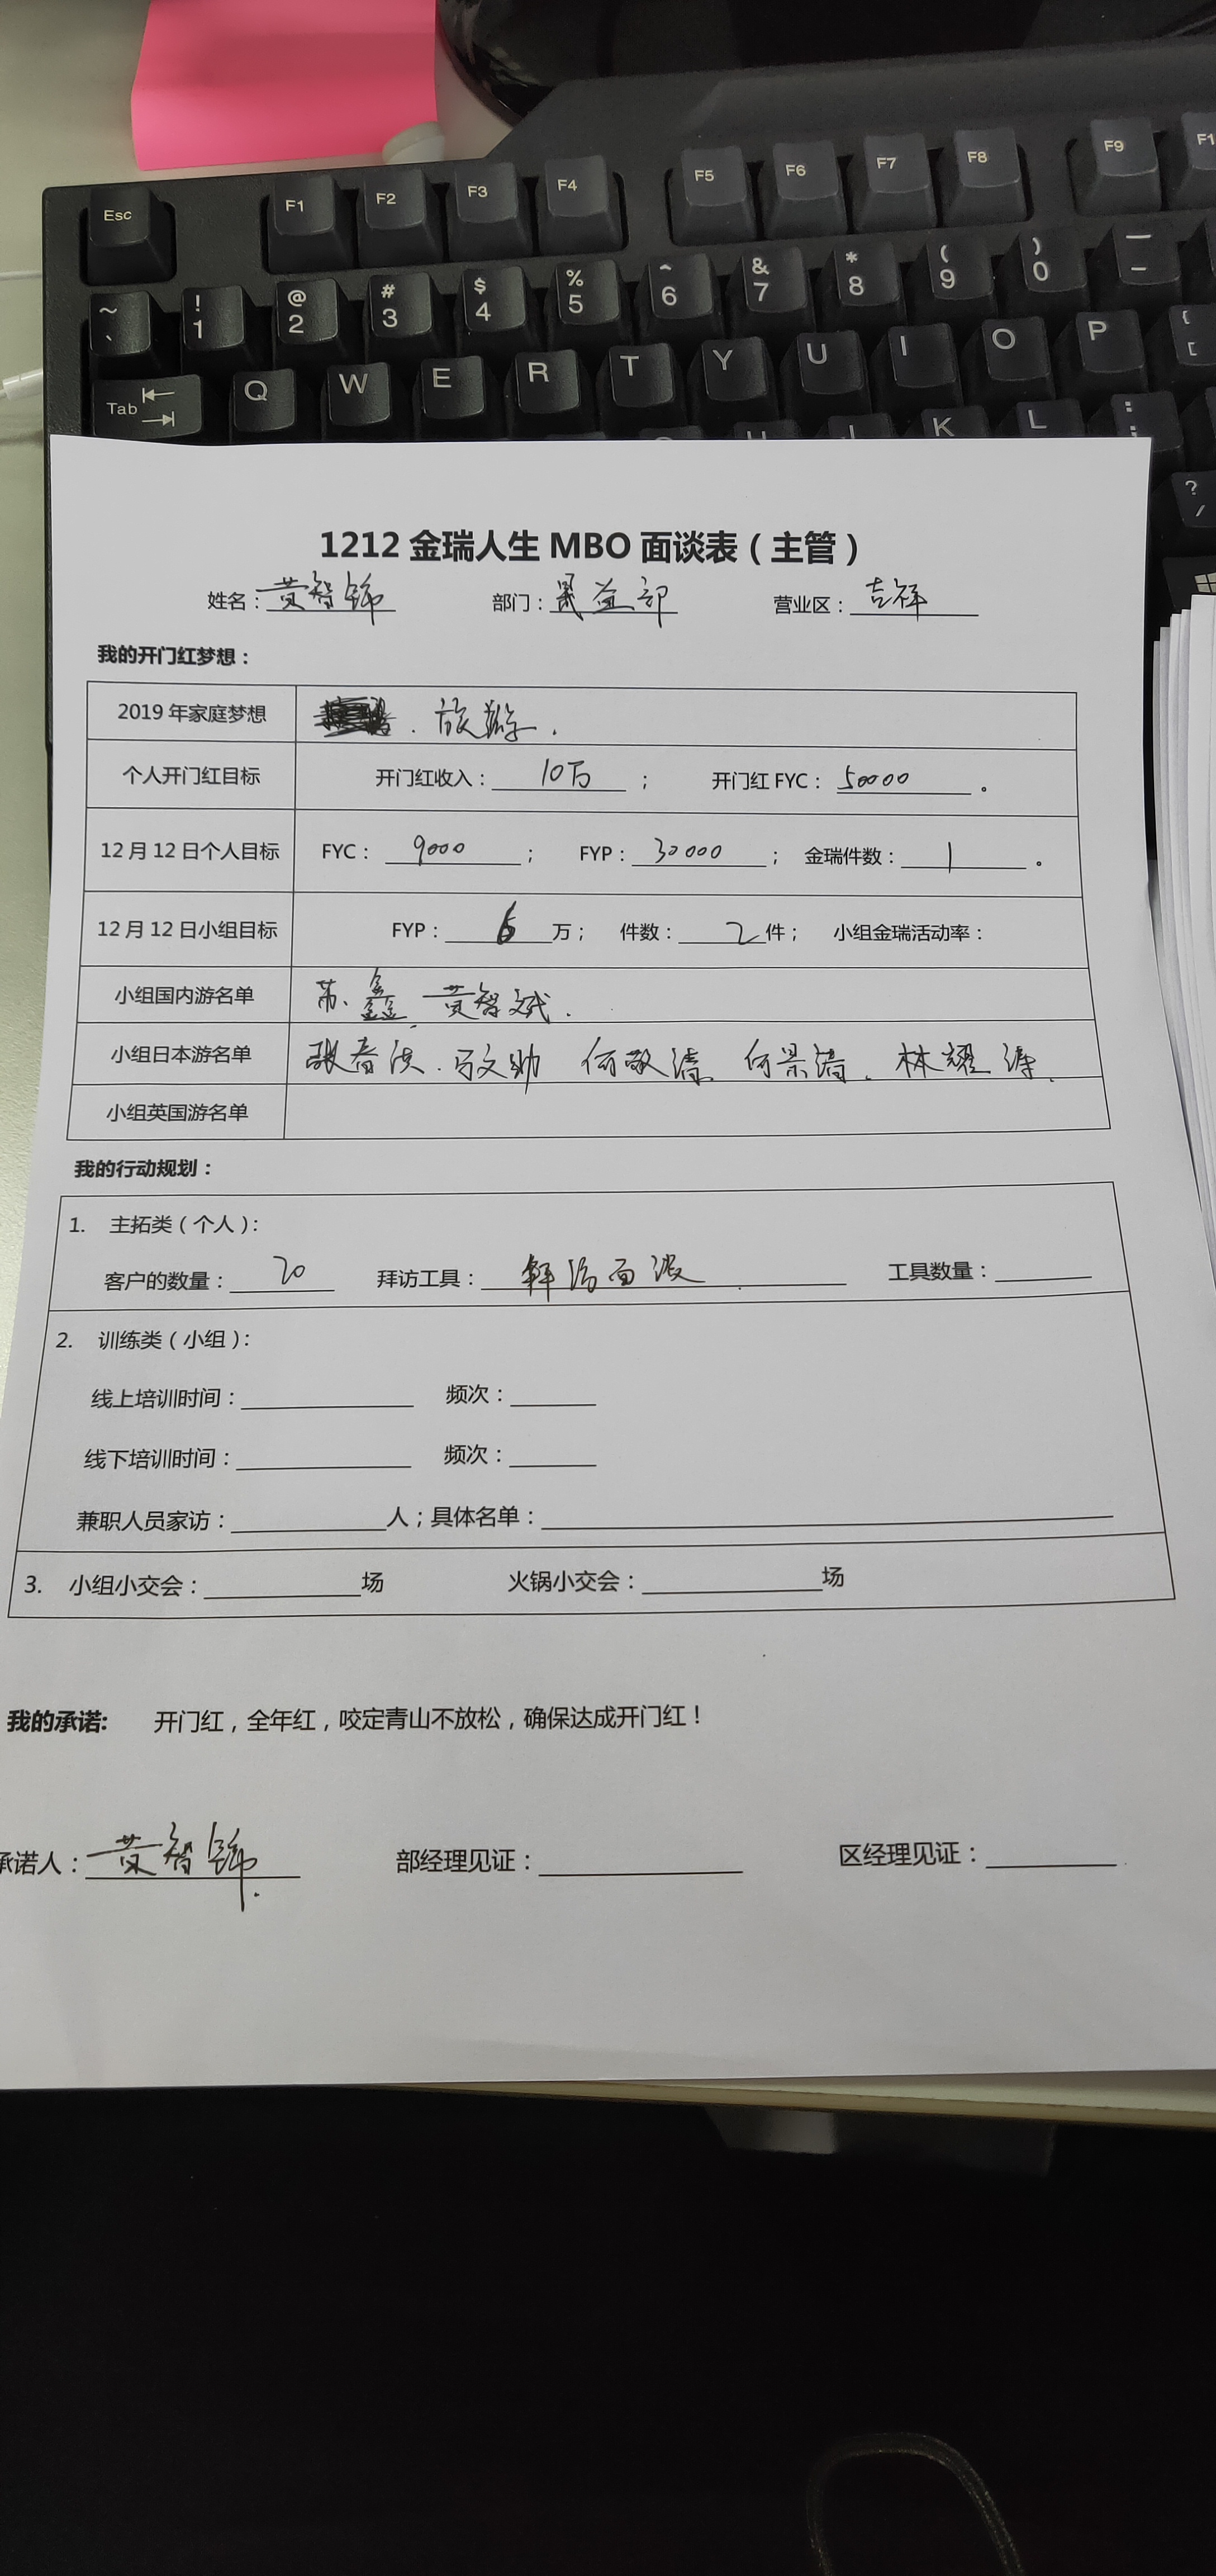 Esc F1 F2 F3 F4 F5 F6 F7 F8 F9 F1
~ ` ! 1 @ 2 # 3 $ 4 % 5 ^ 6 & 7 * 8 ( 9 ) 0 — -
Tab Q W E R T Y U I O P { [
K L : ;
? /
1212金瑞人生MBO面谈表（主管）
姓名：黄智锦 部门：晟益部 营业区：吉祥
我的开门红梦想：
2019年家庭梦想 . 旅游.
个人开门红目标 开门红收入：10万； 开门红FYC：50000。
12月12日个人目标 FYC：9000； FYP：30000； 金瑞件数：1。
12月12日小组目标 FYP：6万； 件数：2件； 小组金瑞活动率：
小组国内游名单 苏鑫 黄智斌.
小组日本游名单 张春 . 马文 何敬清 何景清 . 林耀涛.
小组英国游名单
我的行动规划：
1. 主拓类（个人）：
客户的数量：20 拜访工具： 面谈 工具数量：
2. 训练类（小组）：
线上培训时间： 频次：
线下培训时间： 频次：
兼职人员家访： 人；具体名单：
3. 小组小交会： 场 火锅小交会： 场
我的承诺: 开门红，全年红，咬定青山不放松，确保达成开门红！
承诺人：黄智锦. 部经理见证： 区经理见证：